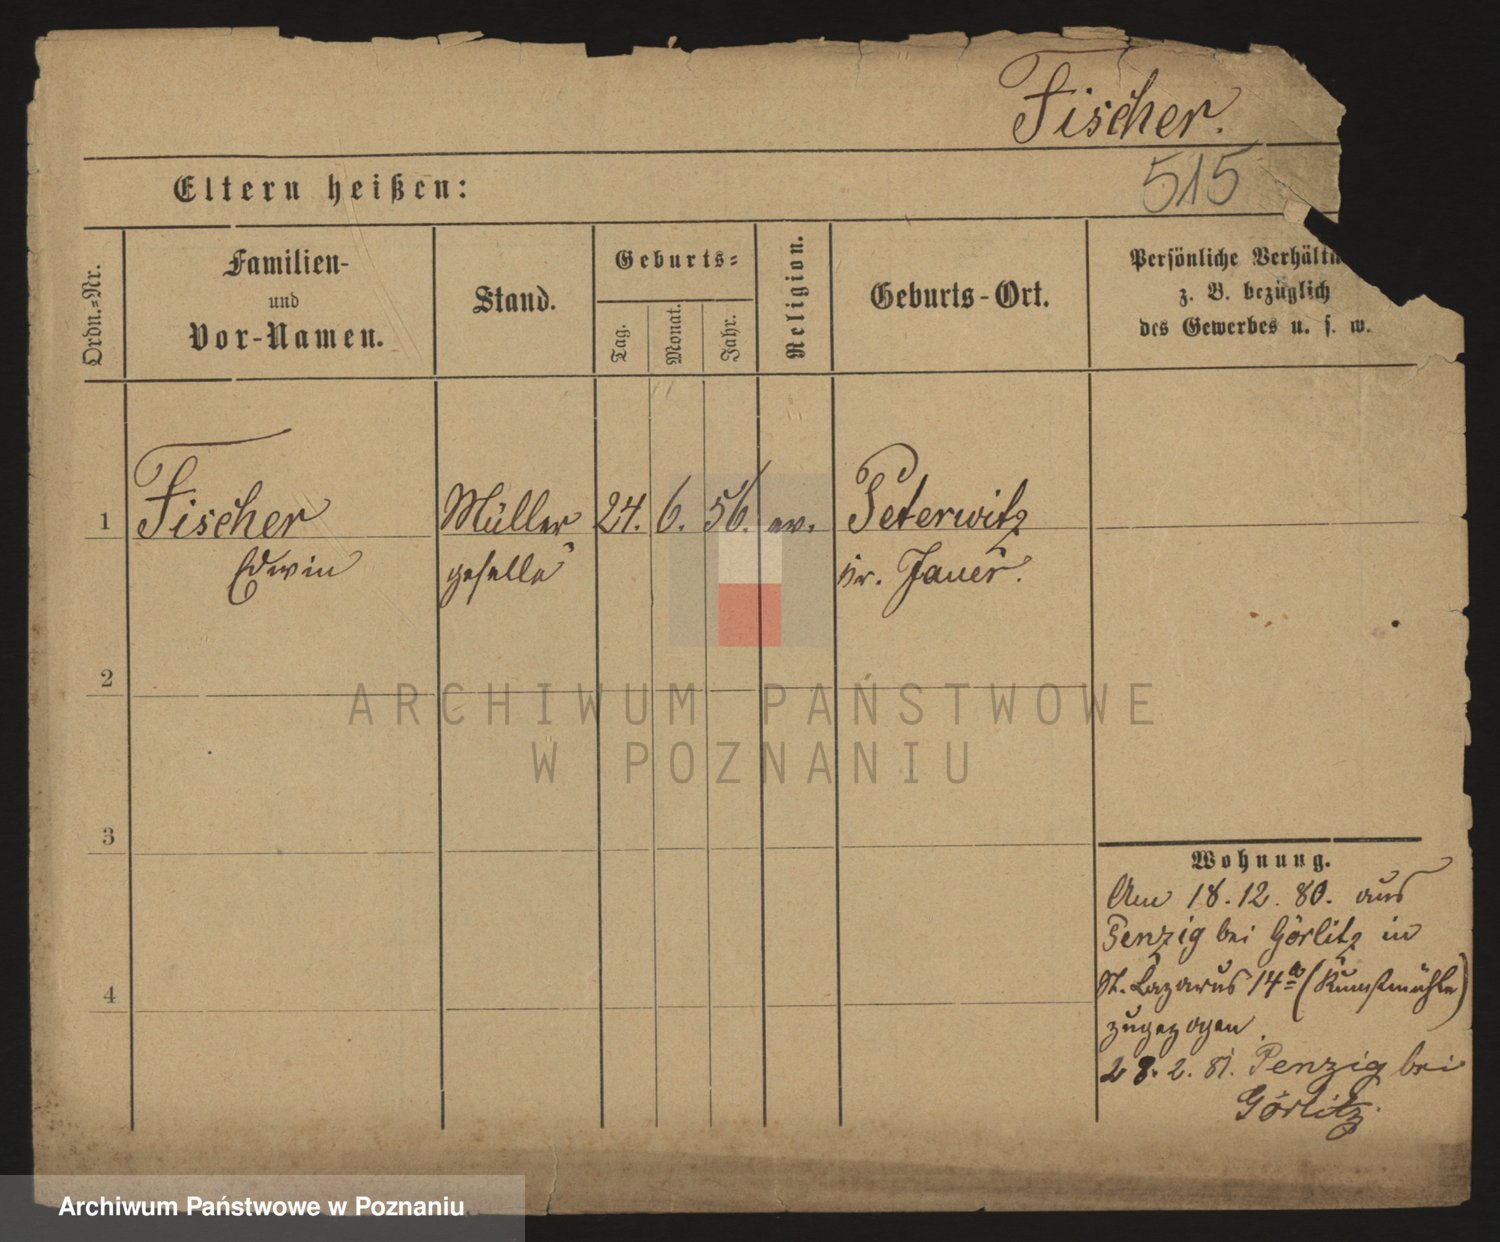 Fischer.
515
Eltern heißen:
Ordn.-Nr.
Familien-
und
Vor-Namen.
Stand.
Geburts-
Tag.
Monat.
Jahr.
Religion.
Geburts-Ort.
Persönliche Verhältn
z. B. bezüglich
des Gewerbes u. s. w.
1 Fischer Müller 24. 6. 56. ev. Peterwitz
Edwin geselle Kr. Jauer.
2
ARCHIWUM PAŃSTWOWE
W POZNANIU
3
Wohnung.
Am 18.12.80. aus
Penzig bei Görlitz in
St. Lazarus 14a (Kunstmühle)
zugezogen.
4
28.2.81. Penzig bei
Görlitz.
Archiwum Państwowe w Poznaniu